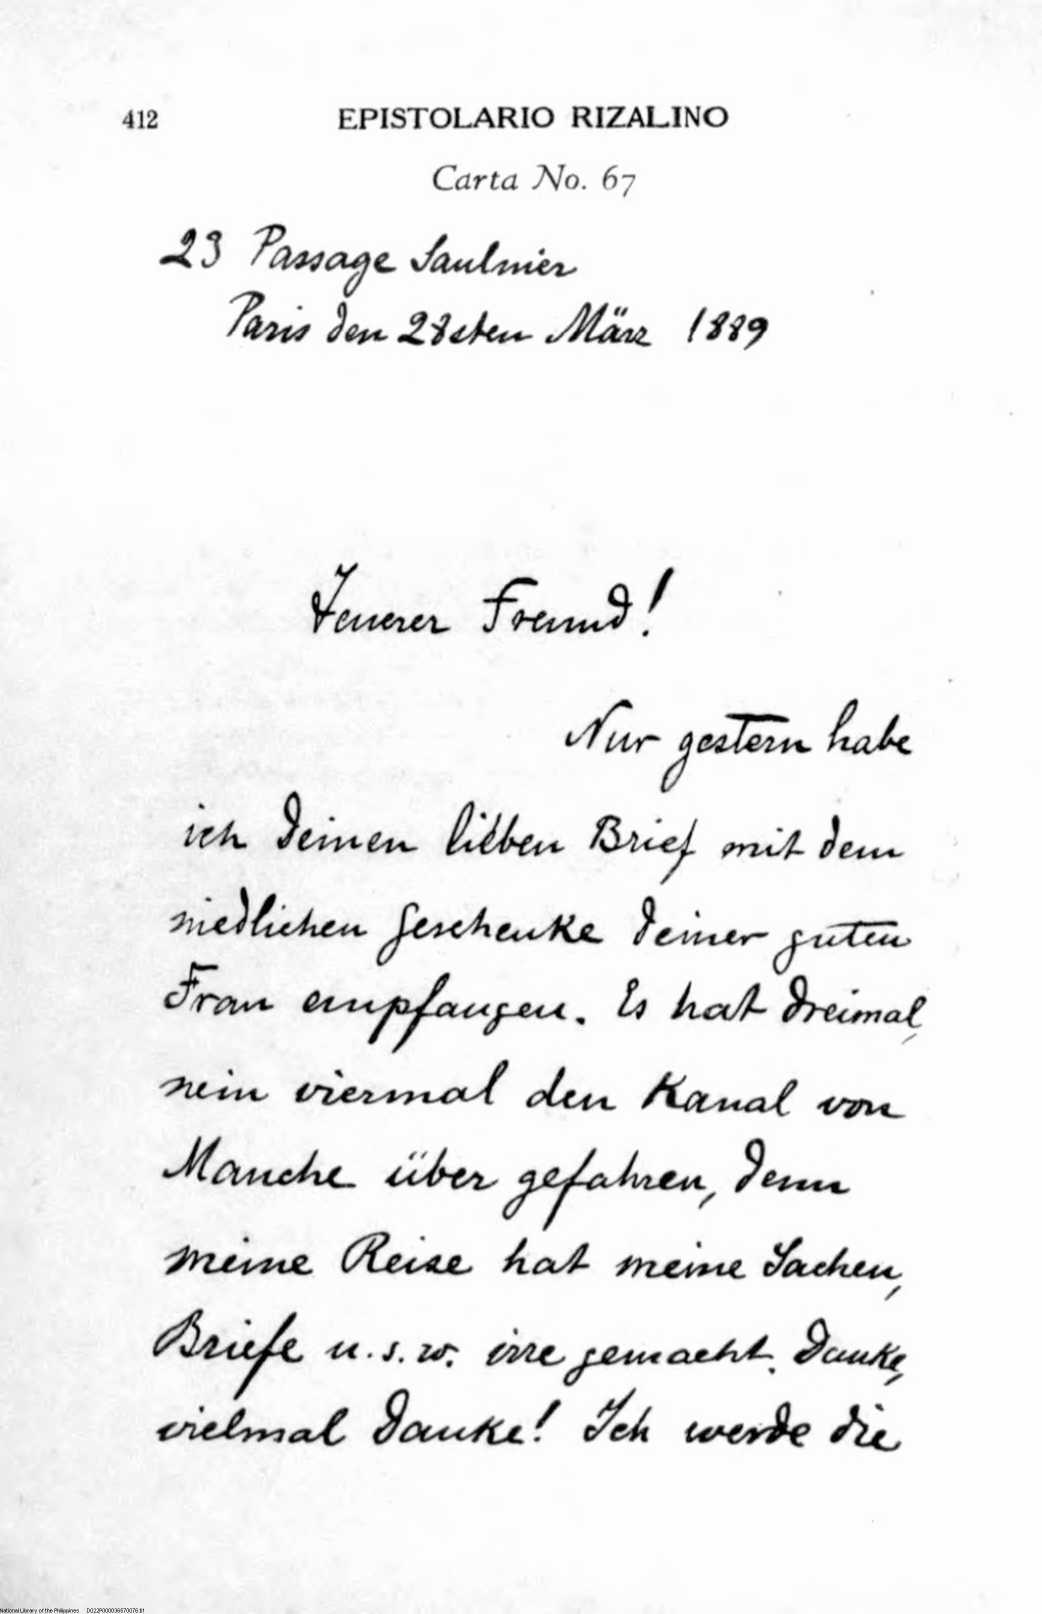 412 EPISTOLARIO RIZALINO
Carta No. 67
23 Passage Saulnier
Paris den 28sten März 1889
Teuerer Freund!
Nur gestern habe
ich deinen lieben Brief mit dem
niedlichen Geschenke deiner guten
Frau empfangen. Es hat dreimal,
nein viermal den Kanal von
Manche über gefahren, denn
meine Reise hat meine Sachen,
Briefe u.s.w. irre gemacht. Danke,
vielmal Danke! Ich werde die
National Library of the Philippines D022P000036670076.tif